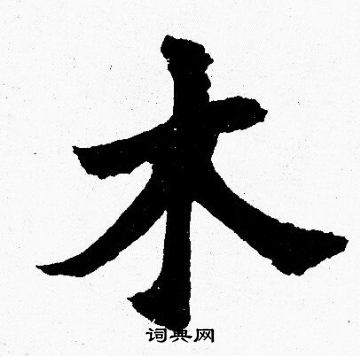 木
词典网